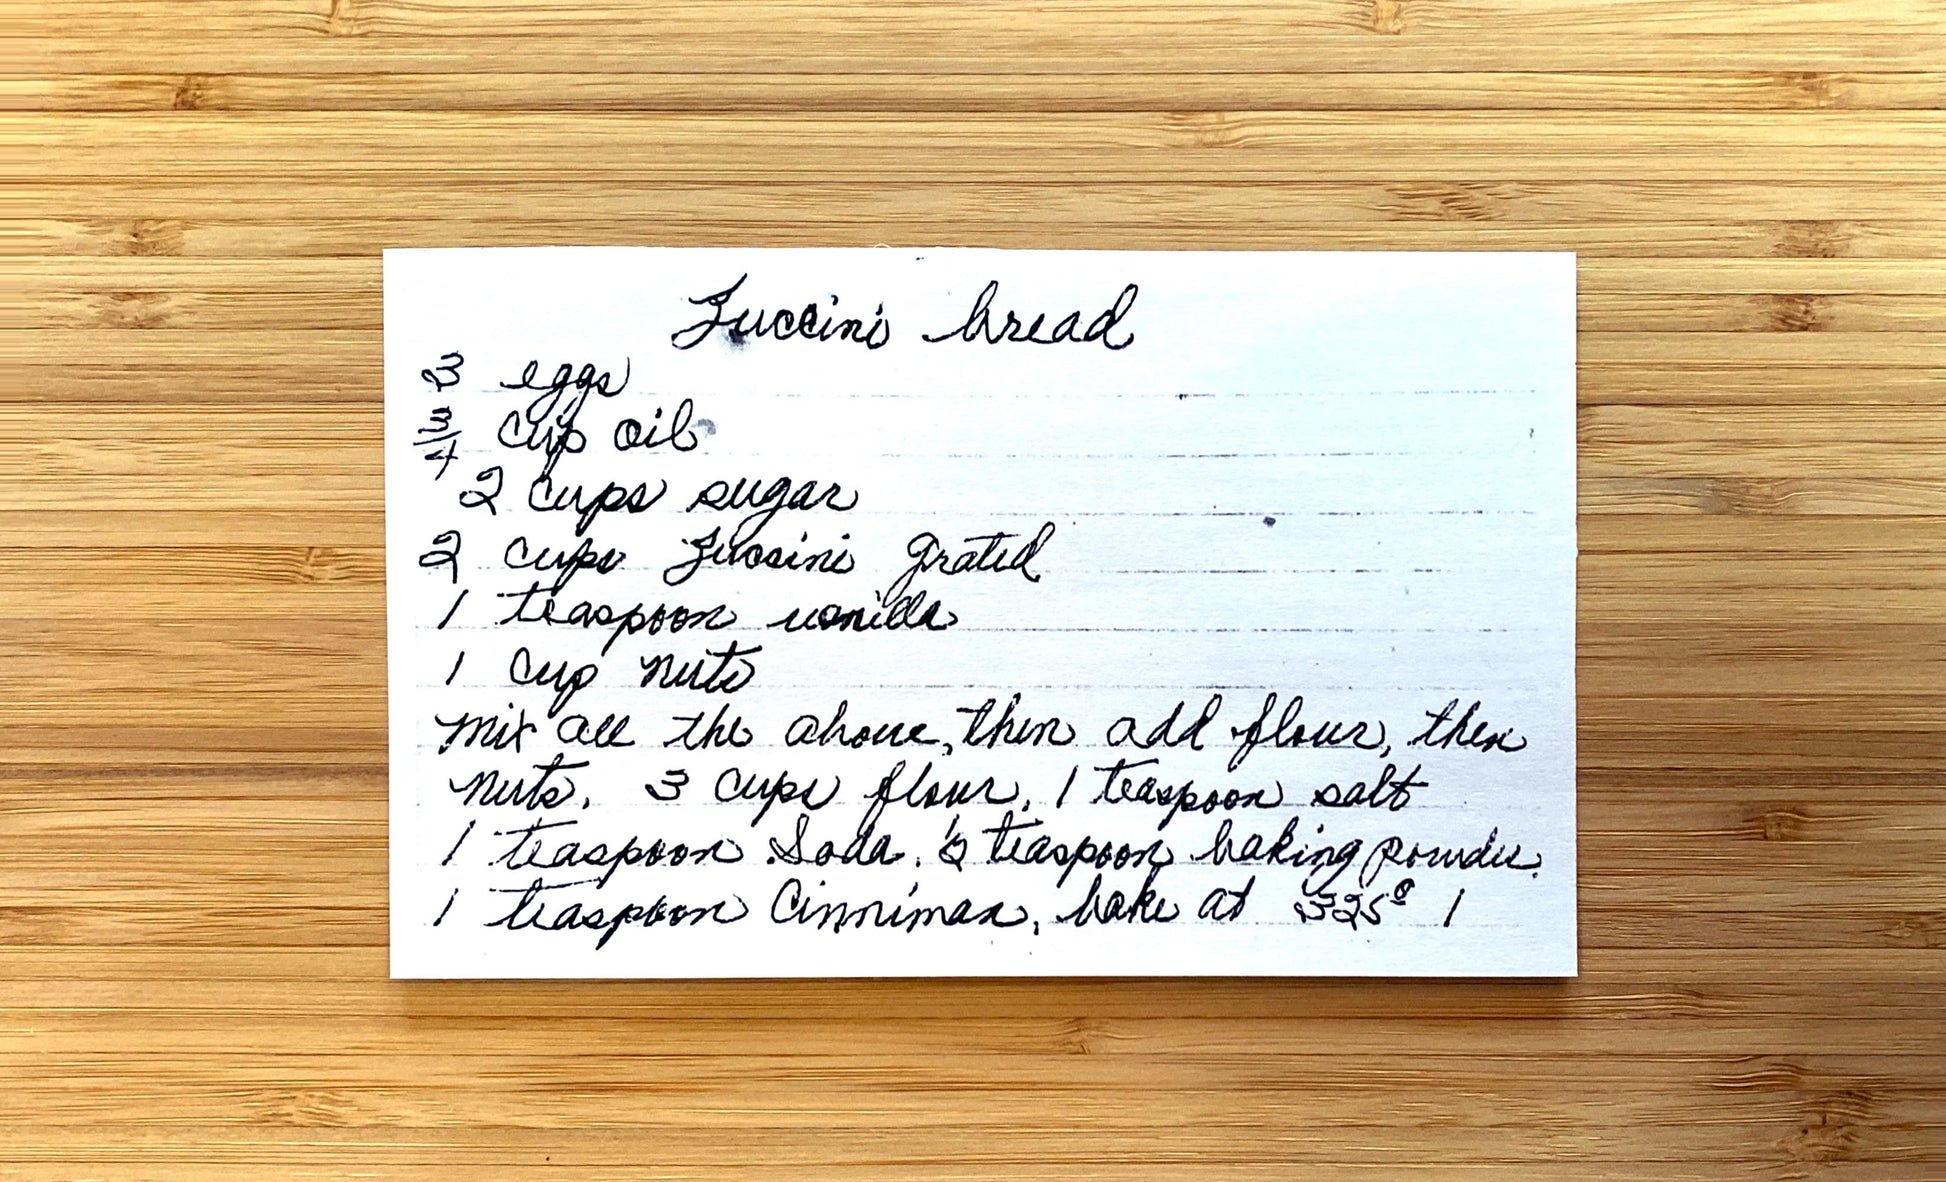 Zuccini bread
3 eggs
3/4 cup oil
2 cups sugar
2 cups Zuccini grated
1 teaspoon vanilla
1 cup nuts
mix all the above, then add flour, then
nuts. 3 cups flour, 1 teaspoon salt
1 teaspoon Soda, ½ teaspoon baking powder.
1 teaspoon Cinniman, bake at 325° 1